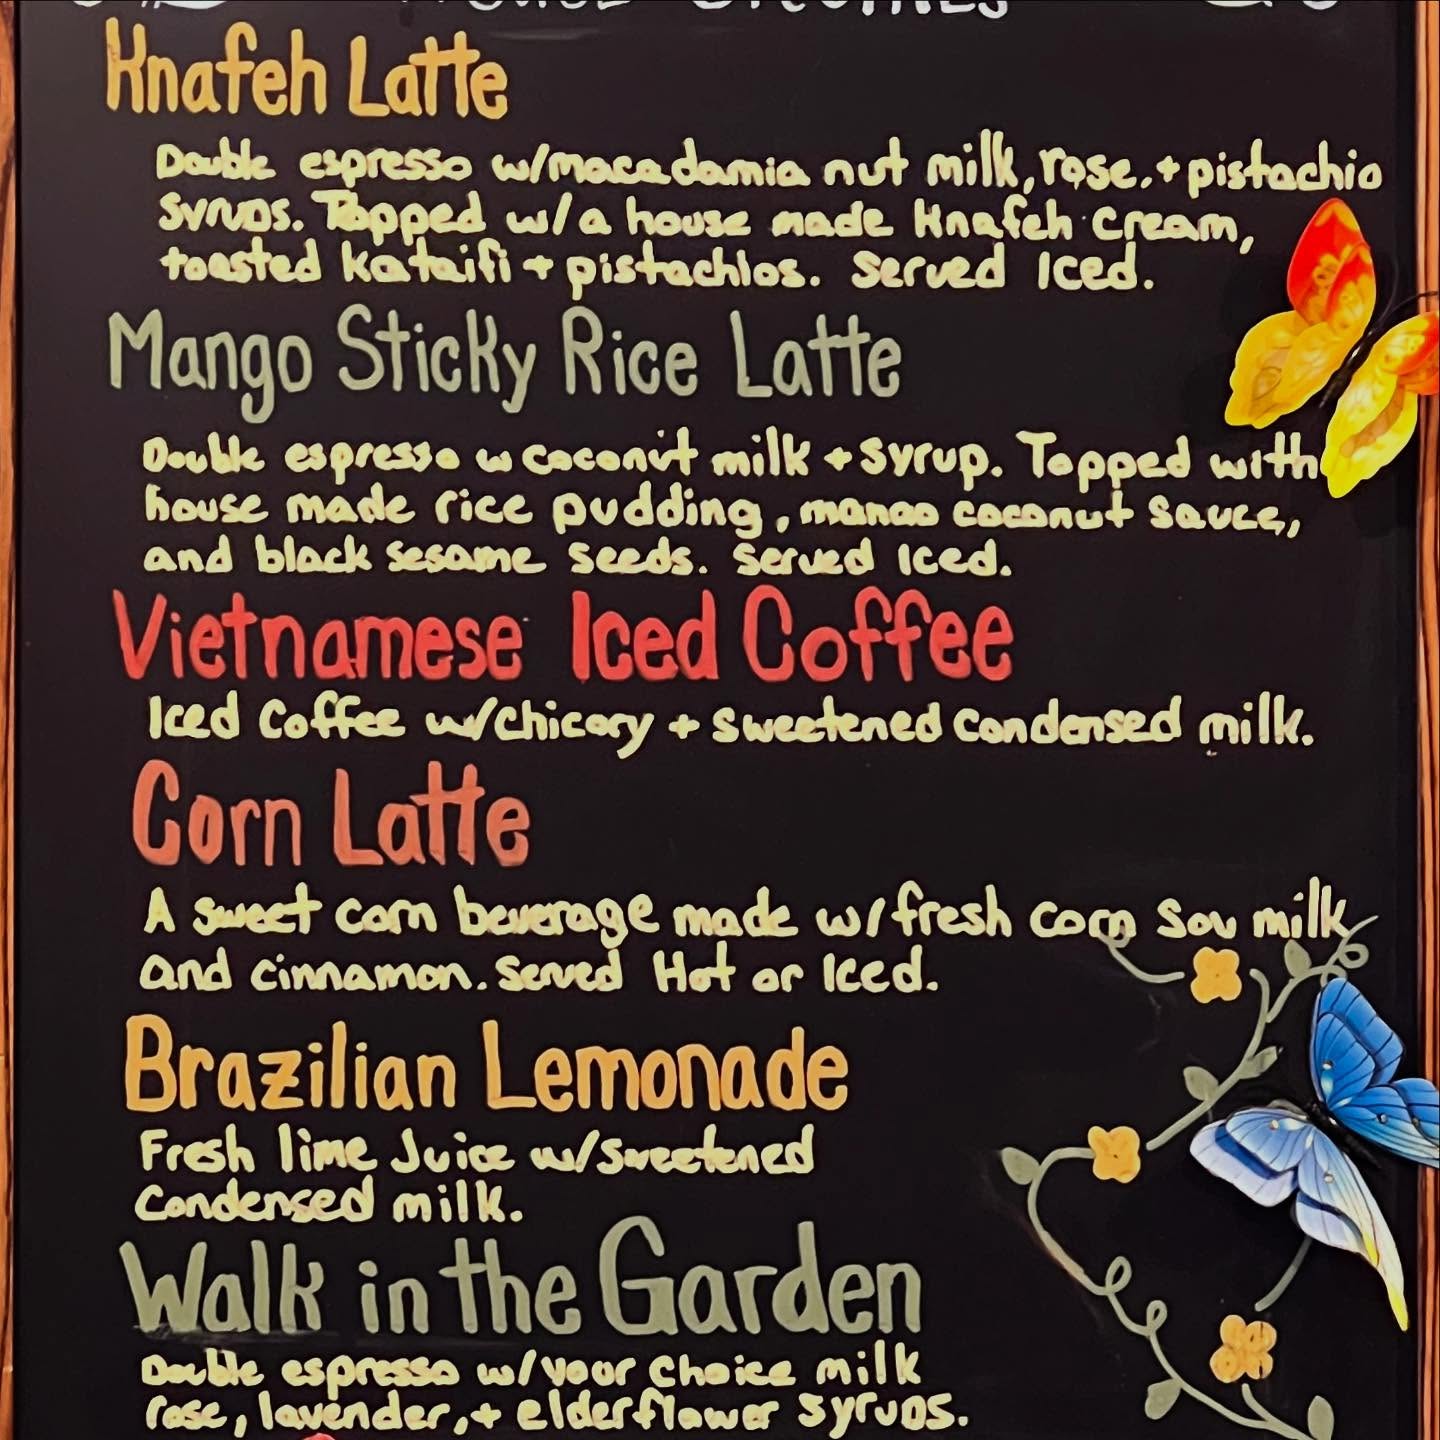 Knafeh Latte
Double espresso w/macadamia nut milk, rose, + pistachio
syrups. Topped w/a house made Knafeh cream,
toasted kataifi + pistachios. Served Iced.
Mango Sticky Rice Latte
Double espresso w coconut milk + syrup. Topped with
house made rice pudding, mango coconut sauce,
and black sesame seeds. Served Iced.
Vietnamese Iced Coffee
Iced Coffee w/chicory + sweetened condensed milk.
Corn Latte
A sweet corn beverage made w/fresh corn soy milk
and cinnamon. Served Hot or Iced.
Brazilian Lemonade
Fresh lime Juice w/sweetened
Condensed milk.
Walk in the Garden
Double espresso w/your choice milk
rose, lavender, + elderflower syrups.